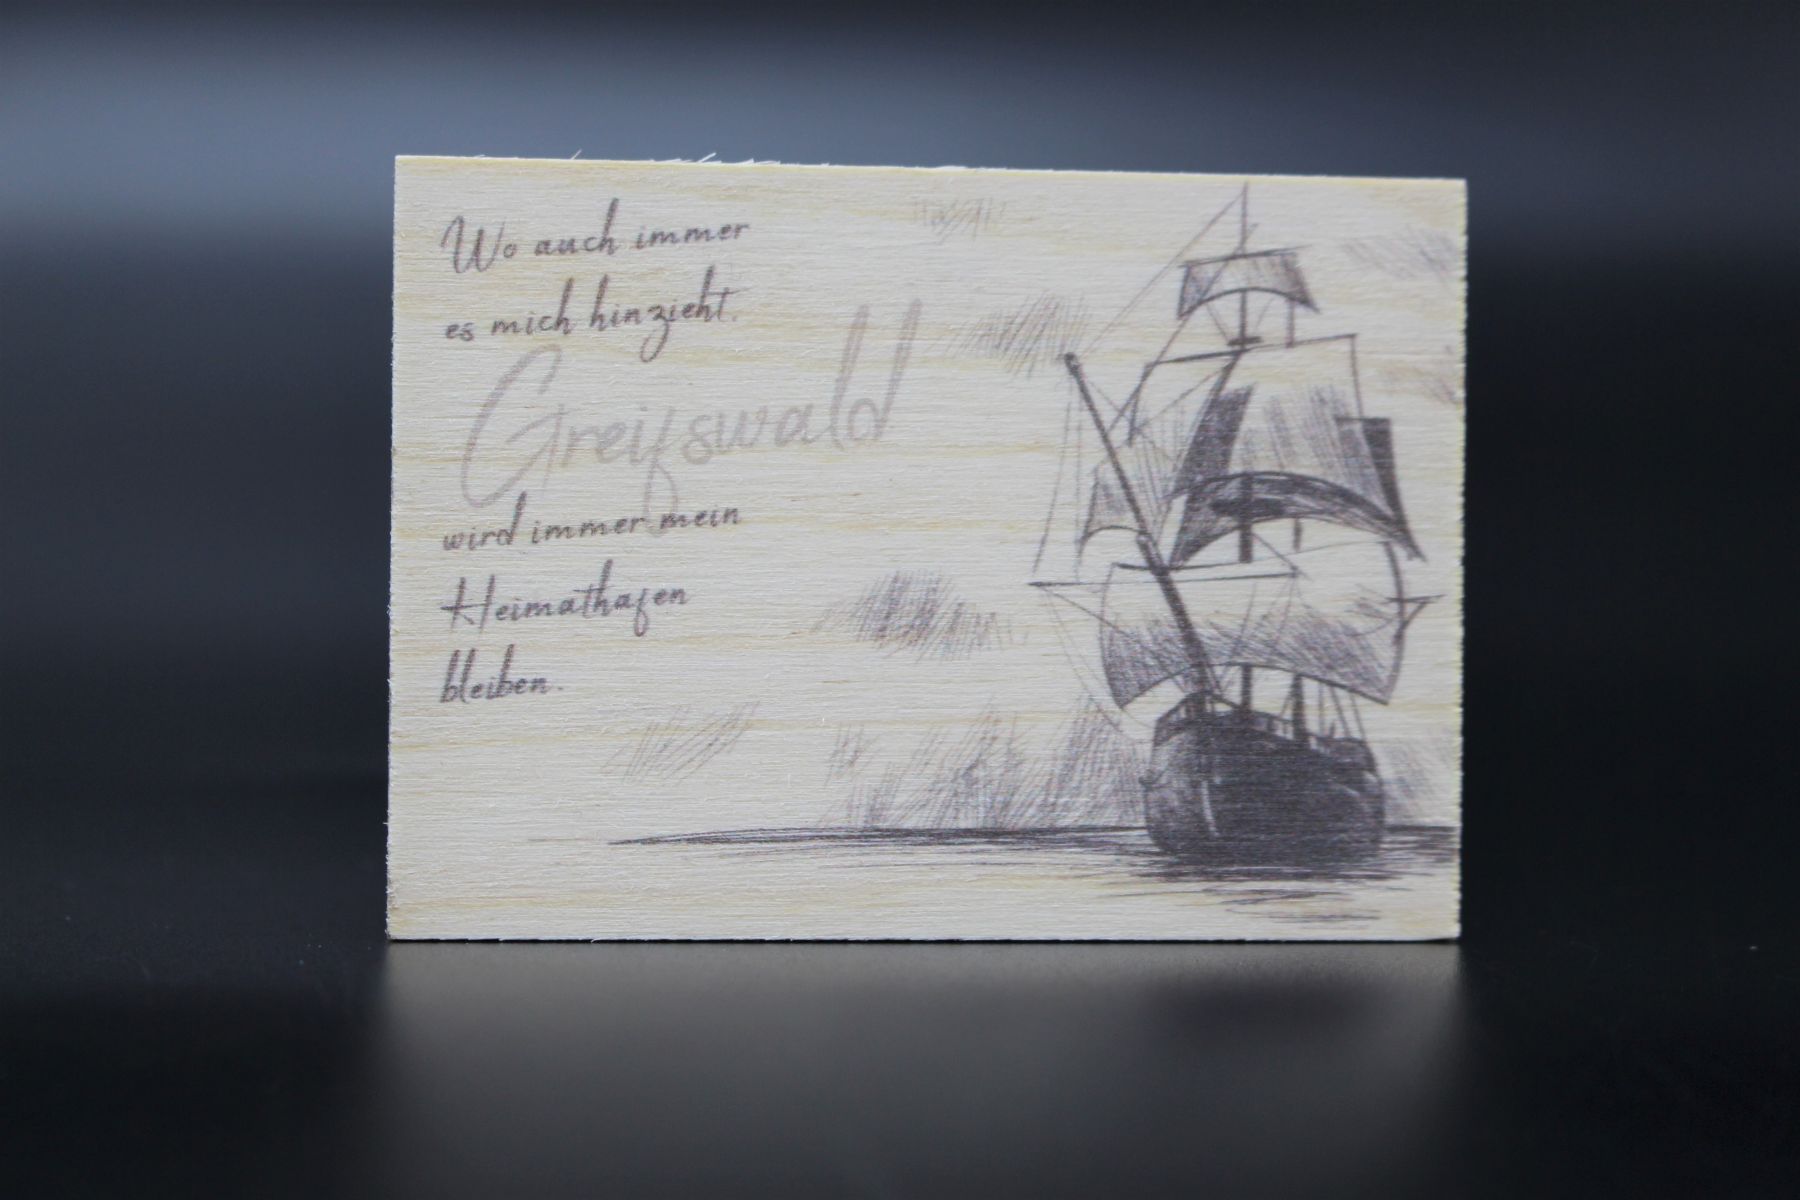 Wo auch immer
es mich hinzieht.
Greifswald
wird immer mein
Heimathafen
bleiben.